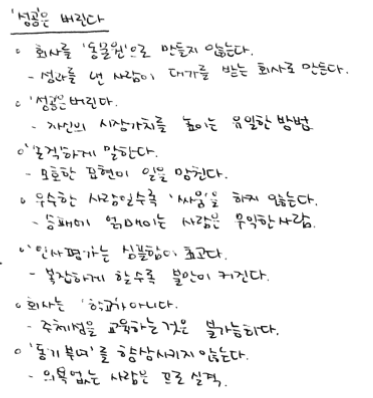 '성공'은 버린다
◦ 회사를 '동물원'으로 만들지 않는다.
- 성과를 낸 사람이 대가를 받는 회사로 만든다.
◦ '성공'은 버린다.
- 자신의 시장가치를 높이는 유일한 방법
◦ '노골적'하게 말한다.
- 모호한 표현이 일을 망친다.
◦ 우수한 사람일수록 '싸움'을 하지 않는다.
- 승패에 얽매이는 사람은 무익한 사람.
◦ '인사평가'는 심플함이 최고다.
- 복잡하게 할수록 불만이 커진다.
◦ 회사는 '학교'가 아니다.
- 주체성을 교육하는 것은 불가능하다.
◦ '동기부여'를 향상시키지 않는다.
- 의욕없는 사람은 프로 실격.